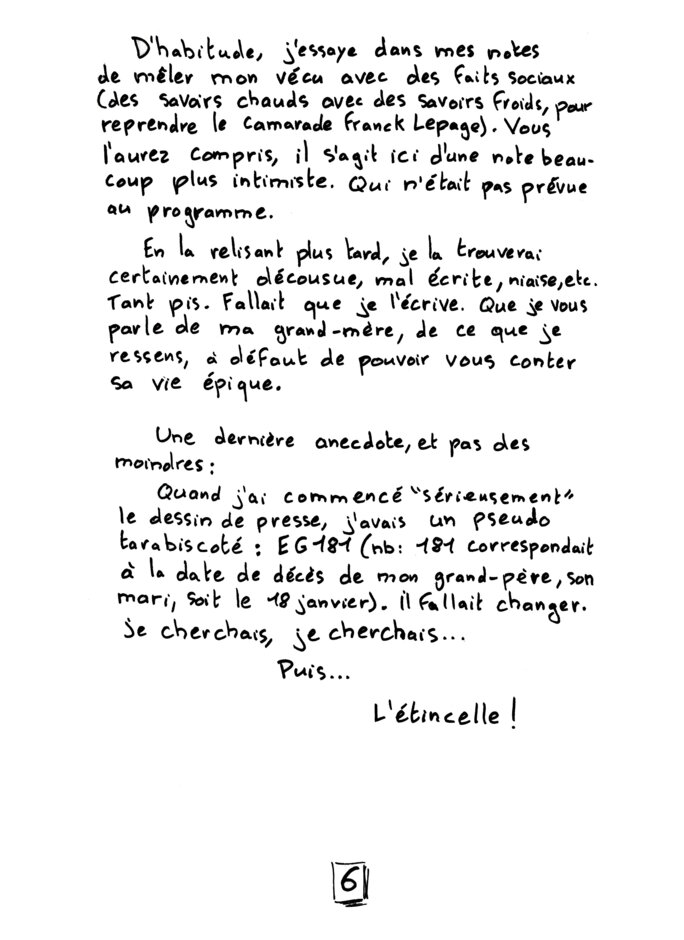 D'habitude, j'essaye dans mes notes
de mêler mon vécu avec des faits sociaux
(des savoirs chauds avec des savoirs froids, pour
reprendre le camarade Franck Lepage). Vous
l'aurez compris, il s'agit ici d'une note beau-
coup plus intimiste. Qui n'était pas prévue
au programme.
En la relisant plus tard, je la trouverai
certainement décousue, mal écrite, niaise, etc.
Tant pis. Fallait que je l'écrive. Que je vous
parle de ma grand-mère, de ce que je
ressens, à défaut de pouvoir vous conter
sa vie épique.
Une dernière anecdote, et pas des
moindres :
Quand j'ai commencé "sérieusement"
le dessin de presse, j'avais un pseudo
tarabiscoté : EG181 (nb: 181 correspondait
à la date de décès de mon grand-père, son
mari, soit le 18 janvier). Il fallait changer.
Je cherchais, je cherchais...
Puis...
L'étincelle !
6